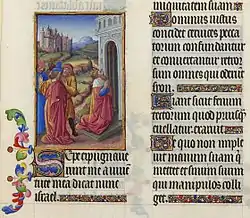 Sepe expugnave
runt me a iuve
tute mea dicat nunc
israel.
iniquitatem suam.
Dominus iustus
concidet cervices pecca
torum confundantur
et convertantur retror
sum omnes qui oderunt
sion.
Fiant sicut fenum
tectorum quod priusq
evellatur exaruit
De quo non imple
vit manum suam qui
metet et sinum suum
qui manipulos colli
get.